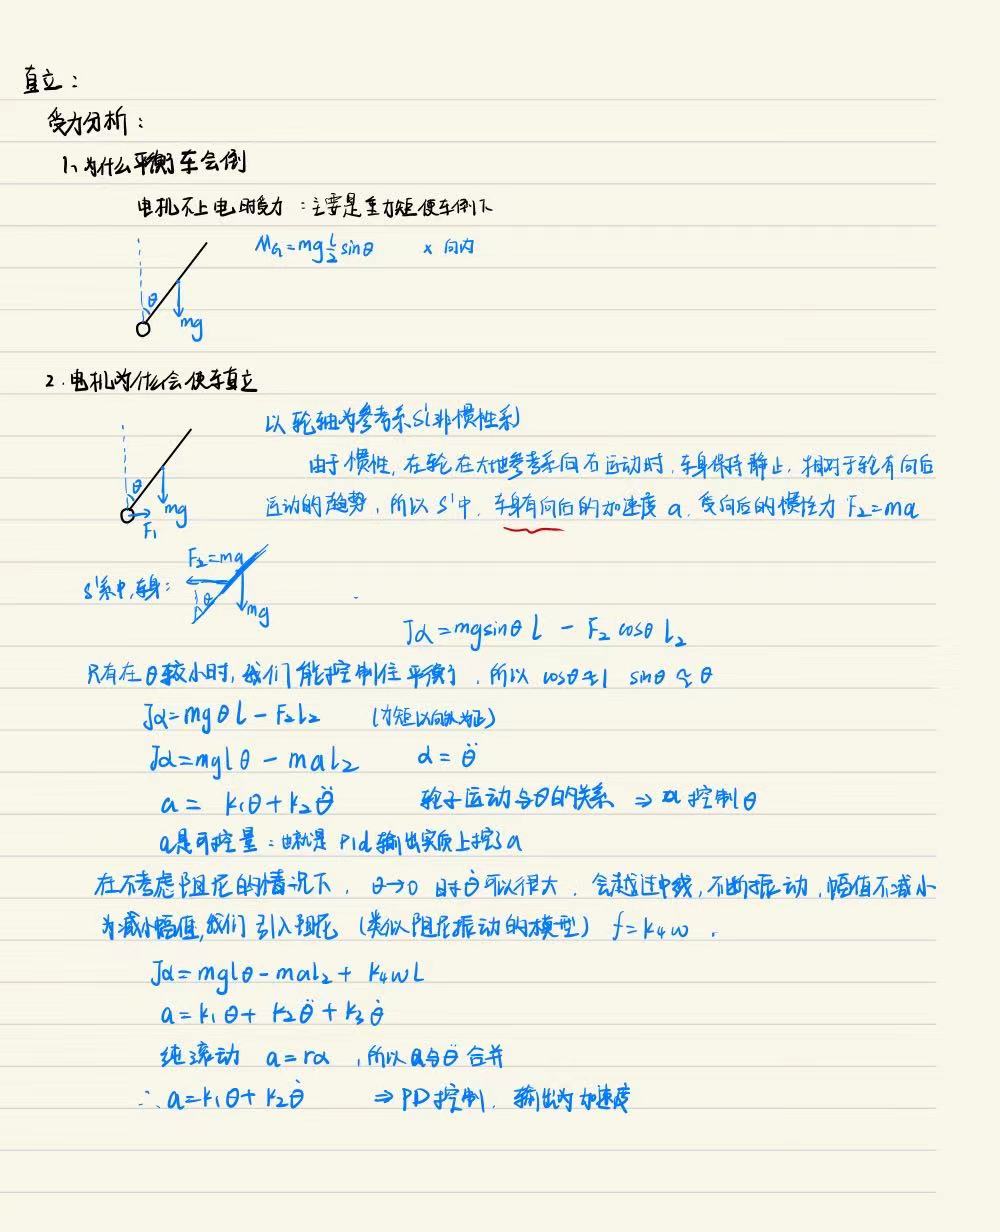 直立：
受力分析：
1、为什么平衡车会倒
电机不上电时受力：主要是重力矩使车倒下
M_G=mg l/2 sinθ × 向内
θ
mg
2.电机为什么会使车直立
以轮轴为参考系S'(非惯性系)
由于惯性,在轮在大地参考系向右运动时,车身保持静止.相对于轮有向后
运动的趋势,所以S'中.车身有向后的加速度a.受向后的惯性力F₂=ma
θ
mg
F₁
S'系中,车身:
F₂=ma
θ
mg
Jα=mgsinθ l - F₂cosθ l₂
只有在θ较小时,我们能控制住平衡,所以 cosθ≈1 sinθ≈θ
Jα=mgθl-F₂l₂ (力矩以向内为正)
Jα=mglθ-mal₂ α=θ̈
a= k₁θ+k₂θ̈ 轮子运动与θ的关系 ⇒ 控制θ
a是可控量：也就是Pid输出实质上控了a
在不考虑阻尼的情况下,θ→0时θ̇可以很大.会越过中线,不断振动,幅值不减小
为减小幅值,我们引入阻尼(类似阻尼振动的模型) f=k₄ω.
Jα=mglθ-mal₂+k₄ωL
a=k₁θ+k₂θ̈+k₃θ̇
纯滚动 a=rα,所以a与θ̈合并
∴a=k₁θ+k₂θ̇ ⇒PD控制.输出为加速度